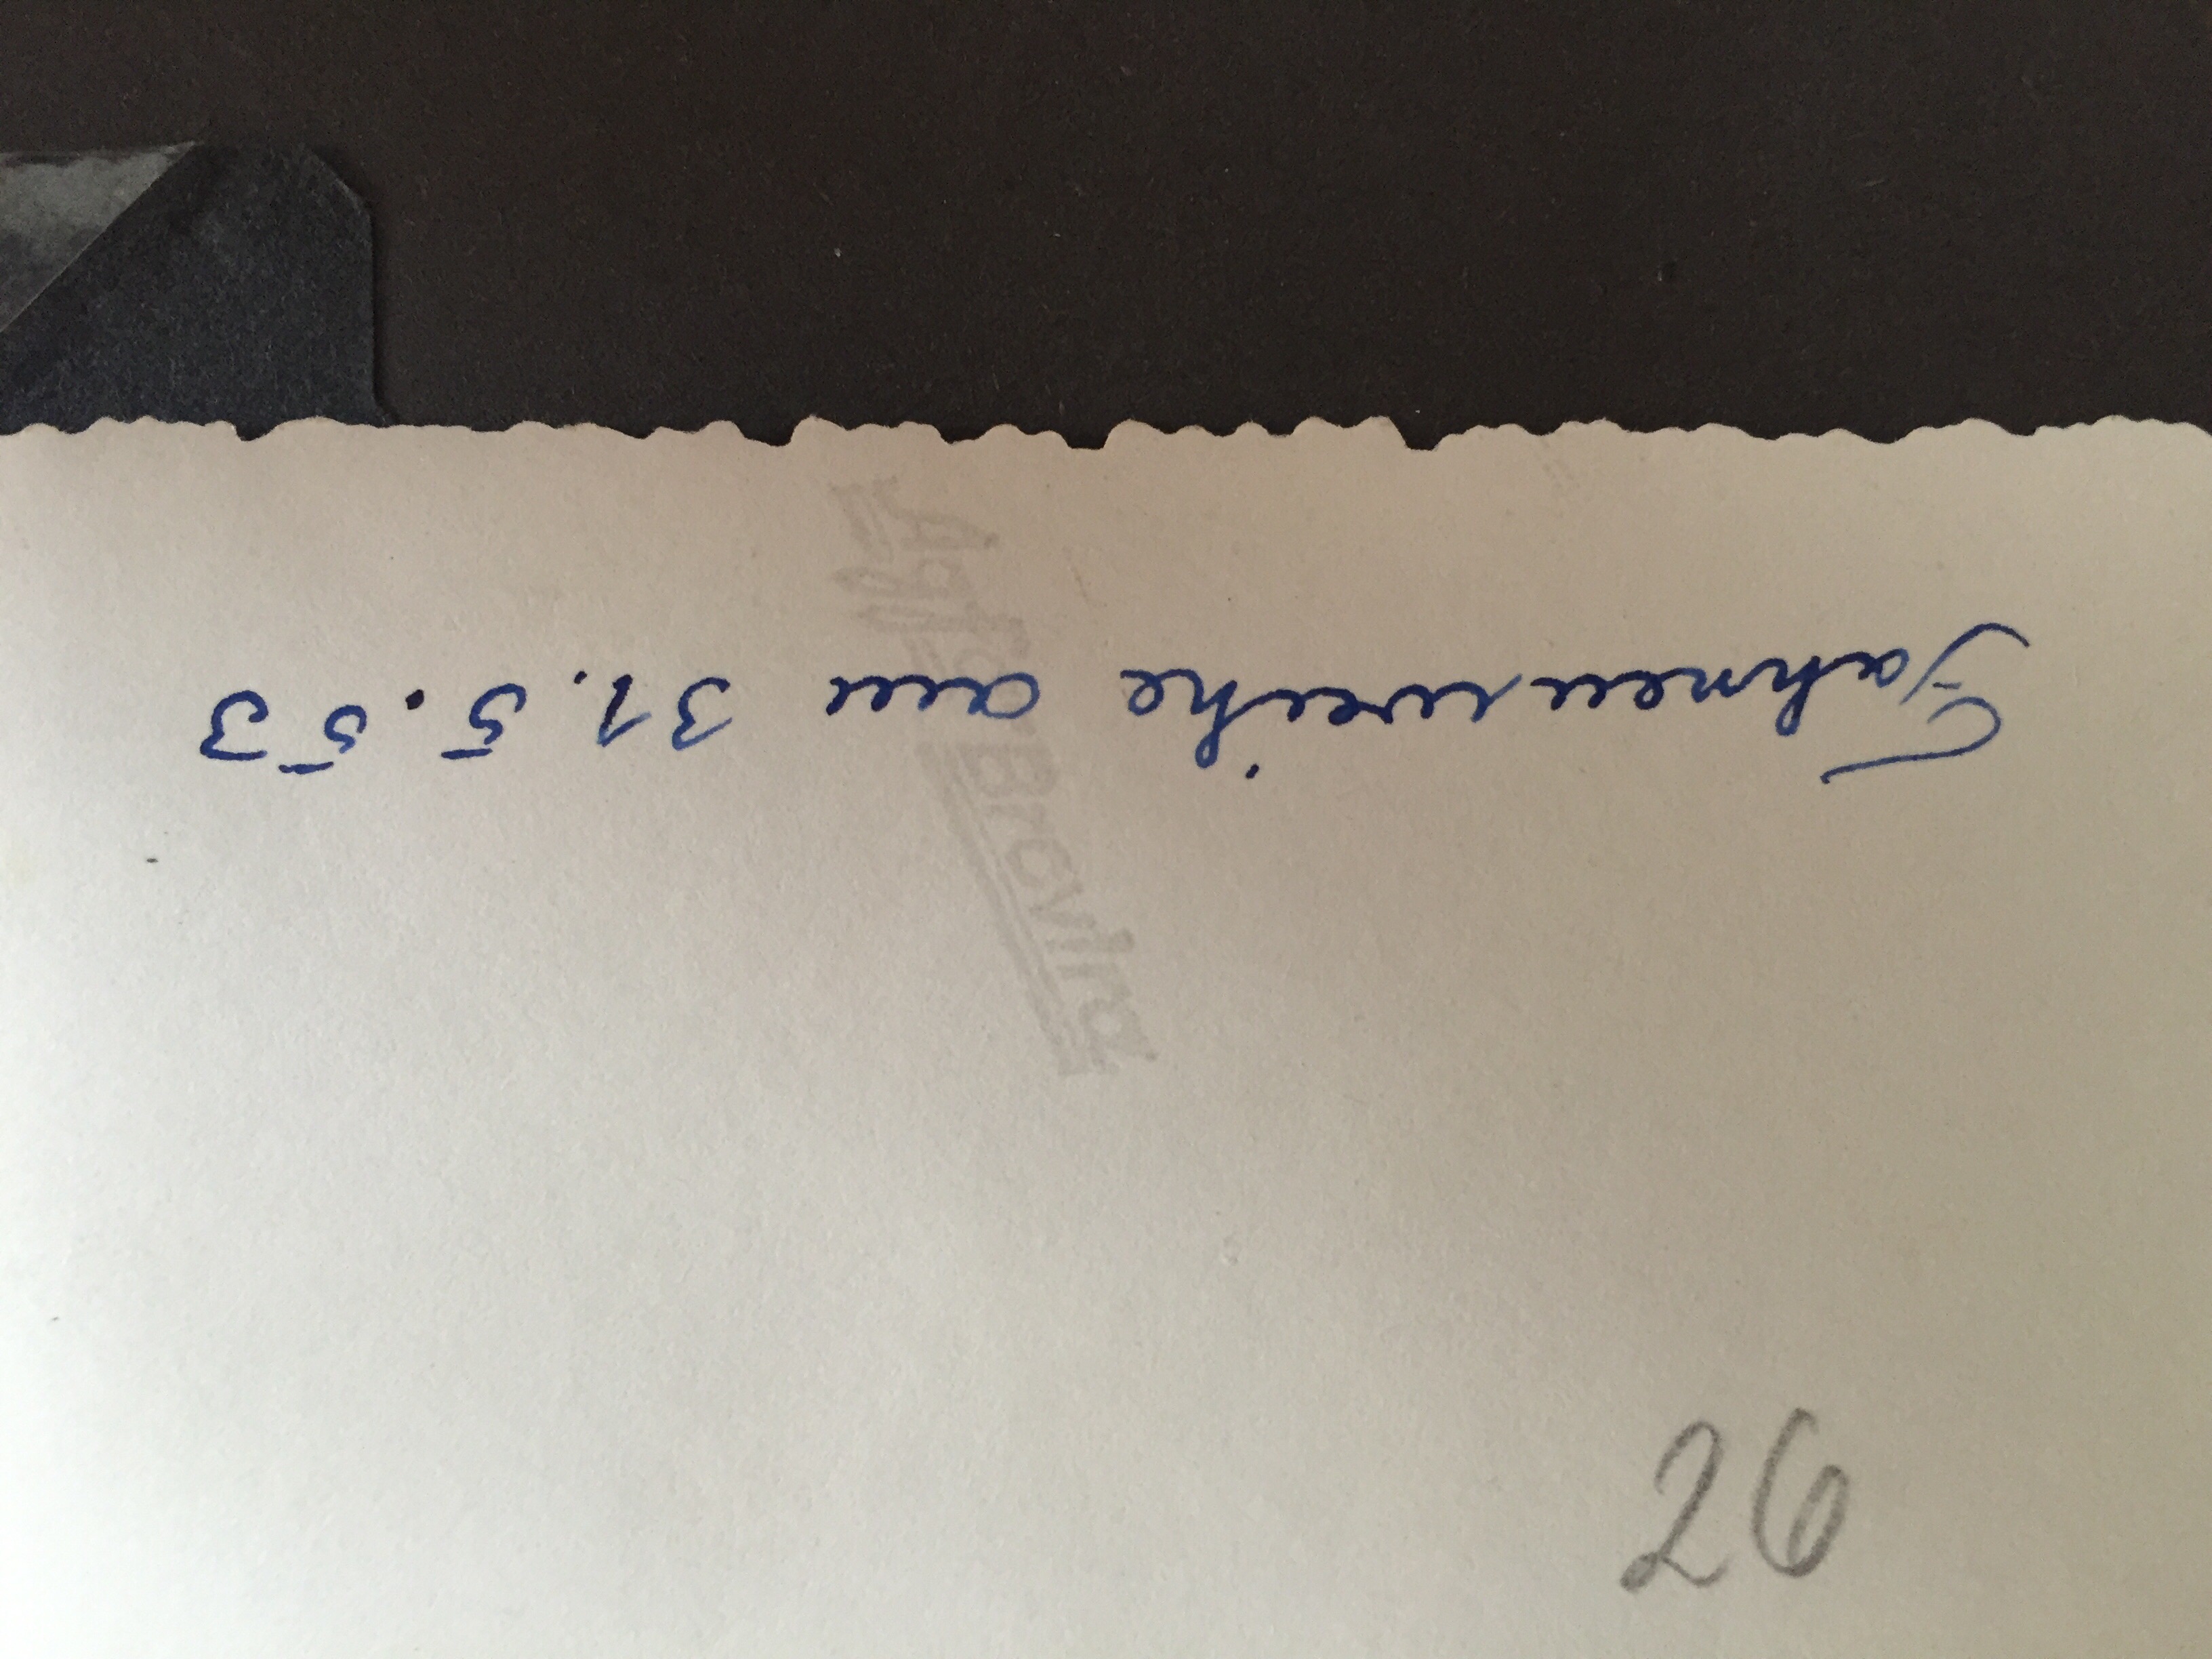 Fahnenweihe am 31.5.53
Agfa Brovira
26